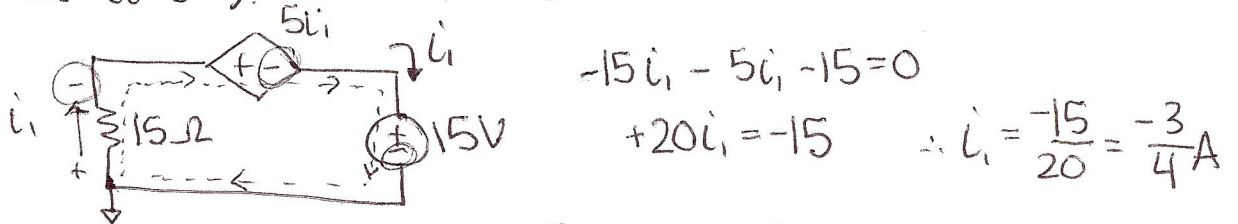 5i₁
+ -
i₁
-
i₁
15Ω
+
+
-
15V
-15i₁ - 5i₁ -15=0
+20i₁ = -15 ∴ i₁ = -15/20 = -3/4 A